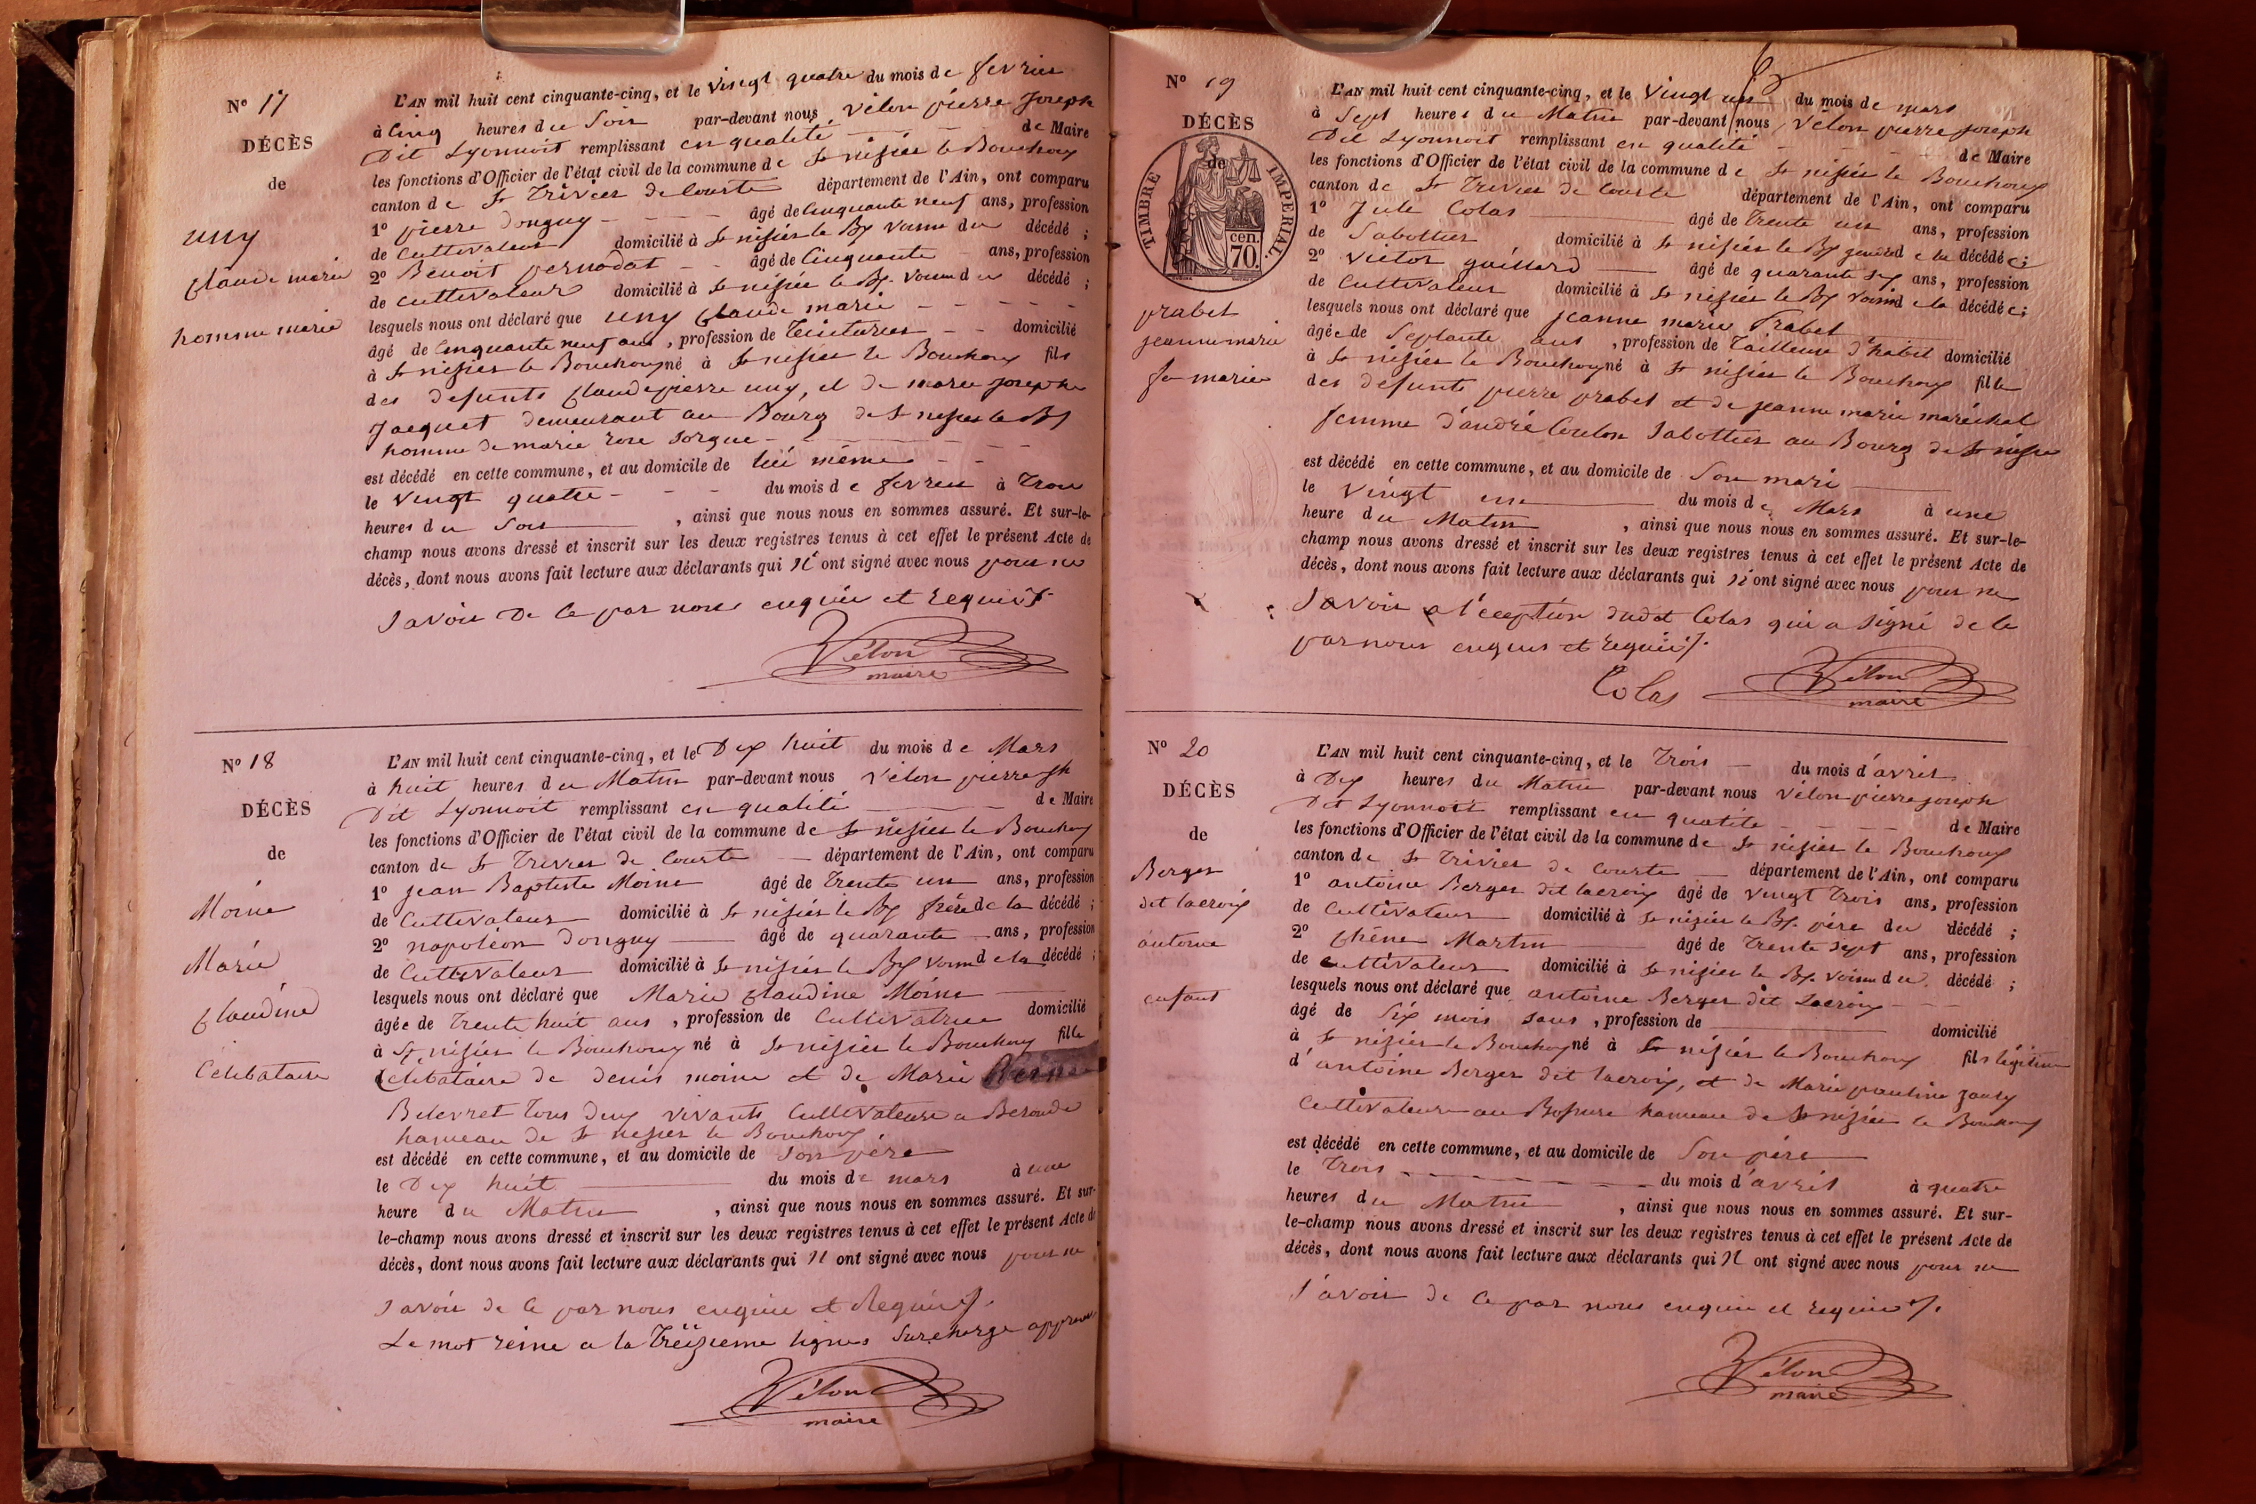 N° 17
DÉCÈS
de
uny
Claude marie
homme marié
L'AN mil huit cent cinquante-cinq, et le vingt quatre du mois de fevrier
à Cinq heures du Soir par-devant nous Vélon pierre Joseph
Dit Lyonnoit remplissant en qualité de Maire
les fonctions d'Officier de l'état civil de la commune de St nisier le Bouchoux
canton de St Trivier de Courte département de l'Ain, ont comparu
1° pierre Donguy âgé de Cinquante neuf ans, profession
de Cultivateur domicilié à St nisier le Bx voisin du décédé ;
2° Benoit pernodat âgé de Cinquante ans, profession
de Cultivateur domicilié à St nisier le Bx. voisin du décédé ;
lesquels nous ont déclaré que uny Claude marie
âgé de Cinquante neuf ans, profession de Teinturier domicilié
à St nisier le Bouchoux né à St nisier le Bouchoux fils
des defunts Claude pierre uny, et de marie josephe
Jacquet demeurant au Bourg de St nisier le Bx
homme de marie rose sorgue
est décédé en cette commune, et au domicile de lui même
le vingt quatre du mois de fevrier à Trois
heures du Soir , ainsi que nous nous en sommes assuré. Et sur-le-
champ nous avons dressé et inscrit sur les deux registres tenus à cet effet le présent Acte de
décès, dont nous avons fait lecture aux déclarants qui n'ont signé avec nous pour ne
savoir de ce par nous enquis et requis
Vélon
maire
N° 18
DÉCÈS
de
Moine
Marie
Claudine
Célibataire
L'AN mil huit cent cinquante-cinq, et le Dix huit du mois de Mars
à huit heures du Matin par-devant nous Vélon pierre jh
Dit Lyonnoit remplissant en qualité de Maire
les fonctions d'Officier de l'état civil de la commune de St nisier le Bouchoux
canton de St Trivier de Courte département de l'Ain, ont comparu
1° jean Baptiste Moine âgé de Trente un ans, profession
de Cultivateur domicilié à St nisier le Bx frère de la décédé ;
2° napoléon Donguy âgé de quarante ans, profession
de Cultivateur domicilié à St nisier le Bx voisin de la décédé ;
lesquels nous ont déclaré que Marie Claudine Moine
âgée de Trente huit ans , profession de Cultivatrice domicilié
à St nisier le Bouchoux né à St nisier le Bouchoux fille
Célibataire de denis moine et de Marie Reine
Belevret Tous deux vivants Cultivateurs a
hameau de St nisier le Bouchoux
est décédé en cette commune, et au domicile de Son père
le Dix huit du mois de mars à une
heure du Matin , ainsi que nous nous en sommes assuré. Et sur-
le-champ nous avons dressé et inscrit sur les deux registres tenus à cet effet le présent Acte de
décès, dont nous avons fait lecture aux déclarants qui n'ont signé avec nous pour ne
savoir de ce par nous enquis et Requis
Le mot reine a la Trèizieme lignes Surcharge approuvé
Vélon
maire
N° 19
DÉCÈS
de
TIMBRE IMPERIAL.
70 cen.
prabet
jeanne marie
fe mariée
L'AN mil huit cent cinquante-cinq, et le Vingt un du mois de mars
à Sept heures du Matin par-devant nous, Vélon pierre joseph
Dit Lyonnoit remplissant en qualité de Maire
les fonctions d'Officier de l'état civil de la commune de St nisier le Bouchoux
canton de St Trivier de Courte département de l'Ain, ont comparu
1° Jule Colas âgé de Trente un ans, profession
de Sabottier domicilié à St nisier le Bx gendre de la décédée ;
2° Victor guillard âgé de quarante six ans, profession
de Cultivateur domicilié à St nisier le Bx voisin de la décédée ;
lesquels nous ont déclaré que jeanne marie Prabet
âgée de Septante ans , profession de Tailleuse d'habit domicilié
à St nisier le Bouchoux né à St nisier le Bouchoux fille
des défunts pierre prabet et de jeanne marie maréchal
femme d'andré Coulon Sabottier au Bourg de St nisier
est décédé en cette commune, et au domicile de Son mari
le Vingt un du mois de Mars à une
heure du Matin , ainsi que nous nous en sommes assuré. Et sur-le-
champ nous avons dressé et inscrit sur les deux registres tenus à cet effet le présent Acte de
décès, dont nous avons fait lecture aux déclarants qui n'ont signé avec nous pour ne
savoir a l'éception dudit Colas qui a signé de ce
par nous enquis et requis
Colas Vélon
maire
N° 20
DÉCÈS
de
Berger
dit lacroix
antoine
enfant
L'AN mil huit cent cinquante-cinq, et le Trois du mois d'avril
à Dix heures du Matin par-devant nous Vélon pierre joseph
Dit Lyonnoit remplissant en qualité de Maire
les fonctions d'Officier de l'état civil de la commune de St nisier le Bouchoux
canton de St Trivier de Courte département de l'Ain, ont comparu
1° antoine Berger dit lacroix âgé de vingt Trois ans, profession
de Cultivateur domicilié à St nisier le Bx. père du décédé ;
2° Chêne Martin âgé de Trente sept ans, profession
de Cultivateur domicilié à St nisier le Bx. voisin du décédé ;
lesquels nous ont déclaré que antoine Berger dit Lacroix
âgé de Six mois sans , profession de domicilié
à St nisier le Bouchoux né à St nisier le Bouchoux fils légitime
d'antoine Berger dit lacroix, et de Marie pauline
Cultivateurs au hameau de St nisier le Bouchoux
est décédé en cette commune, et au domicile de Son père
le Trois du mois d'avril à quatre
heures du Matin , ainsi que nous nous en sommes assuré. Et sur-
le-champ nous avons dressé et inscrit sur les deux registres tenus à cet effet le présent Acte de
décès, dont nous avons fait lecture aux déclarants qui n'ont signé avec nous pour ne
savoir de ce par nous enquis et requis
Vélon
maire